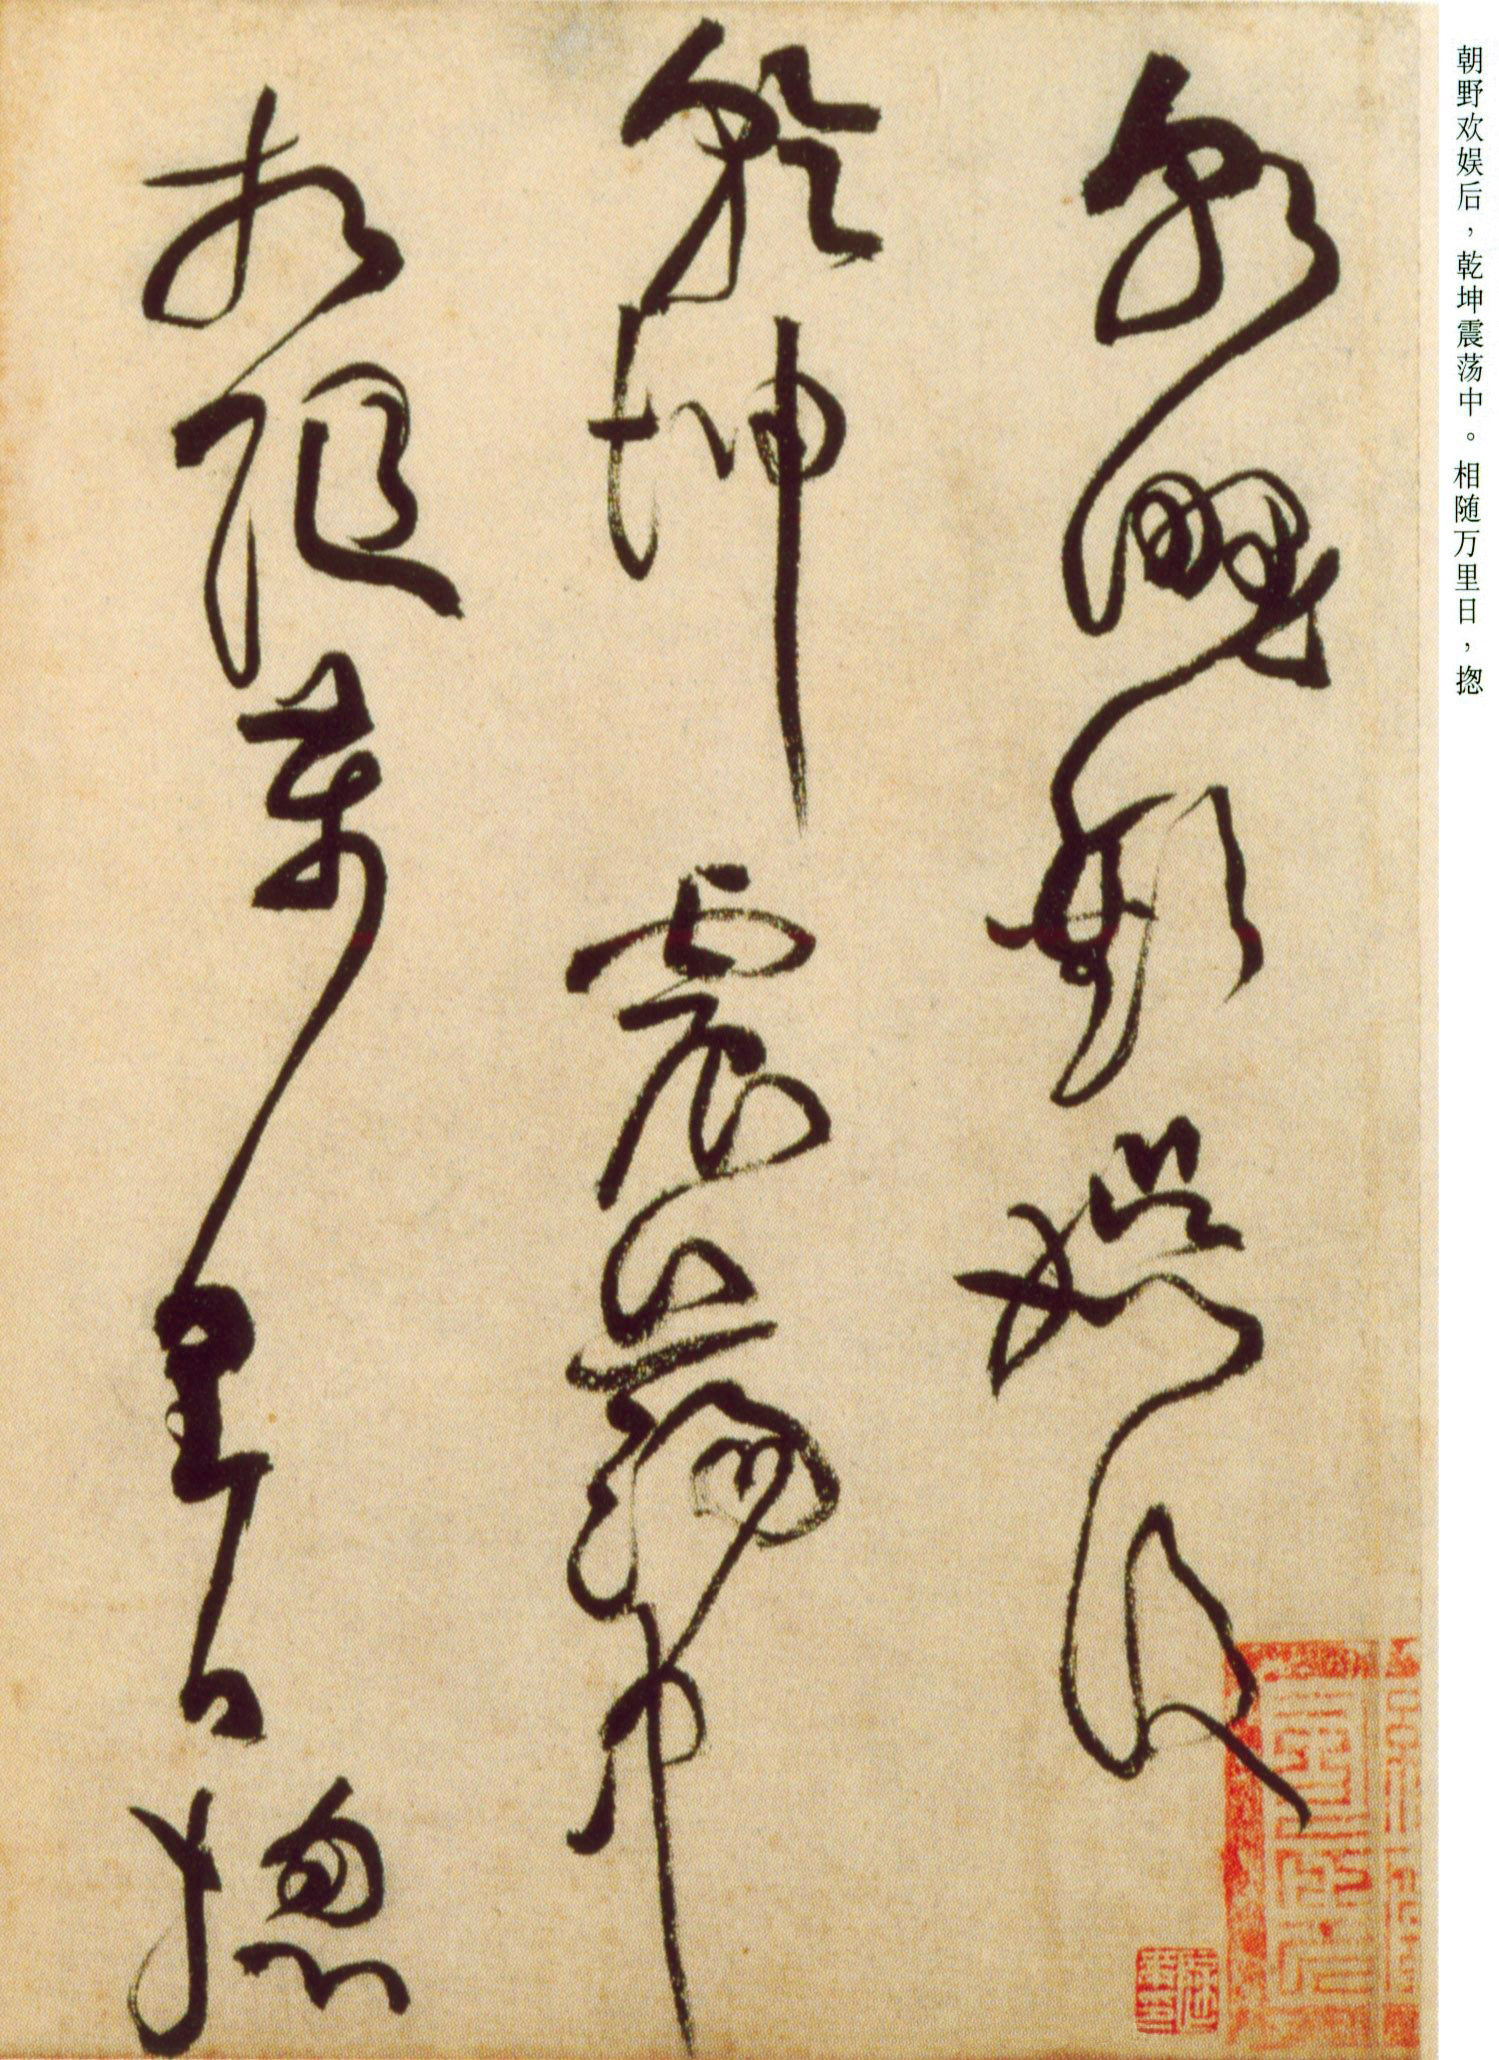 朝野欢娱后，乾坤震荡中。相随万里日，揔
朝野歡娛後
乾坤震蕩中
相隨萬里日揔